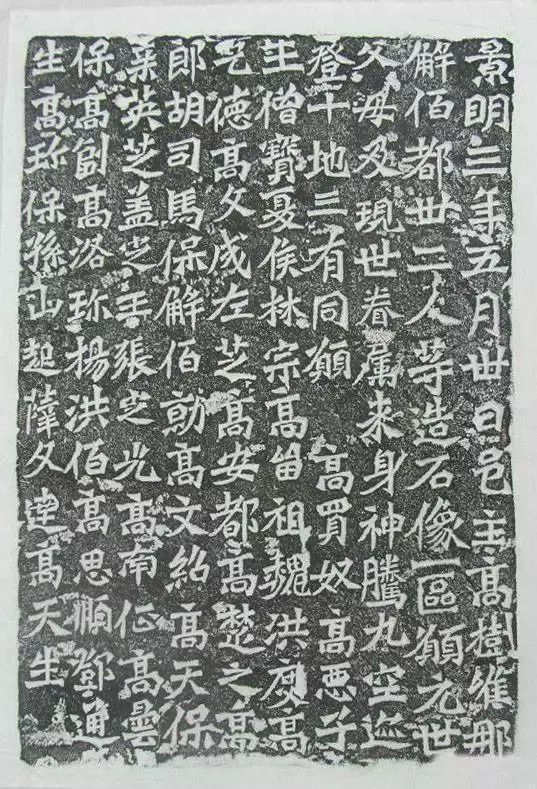 景明三年五月卅日邑主高樹維那
解佰都卅二人等造石像一區願元世
父母及現世眷屬來身神騰九空迹
登十地三有同願 高買奴 高惡子
王僧寶夏侯林宗高留祖魏洪度高
乞德高文成左芝高安都高楚之高
郎胡司馬保解佰勍高文紹高天保
英芝盖定王張定光高南征高曇
保高副高洛珎楊洪佰高思順鄧通
生高珎保孫山起薛文達高天生